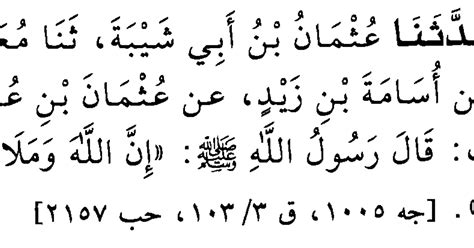 حَدَّثَنَا عُثْمَانُ بْنُ أَبِي شَيْبَةَ، ثَنَا
أُسَامَةَ بْنِ زَيْدٍ، عن عُثْمَانَ بْنِ
قَالَ رَسُولُ اللَّهِ ﷺ: «إِنَّ اللَّهَ
[جه ١٠٠٥، ق ٣/ ١٠٣، حب ٢١٥٧]